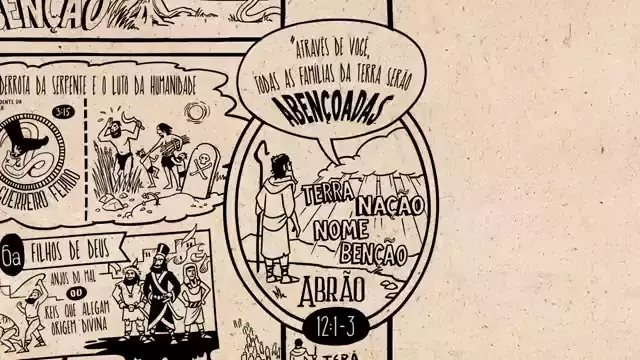 BENÇÃO
"ATRAVÉS DE VOCÊ,
TODAS AS FAMÍLIAS DA TERRA SERÃO
ABENÇOADAS
DERROTA DA SERPENTE E O LUTO DA HUMANIDADE
3:15
GUERREIRO FERIDO
TERRA
NAÇÃO
NOME
BENÇÃO
ABRÃO
12:1-3
6a
FILHOS DE DEUS
ANJOS DO MAL
OU
REIS QUE ALEGAM
ORIGEM DIVINA
TERÁ